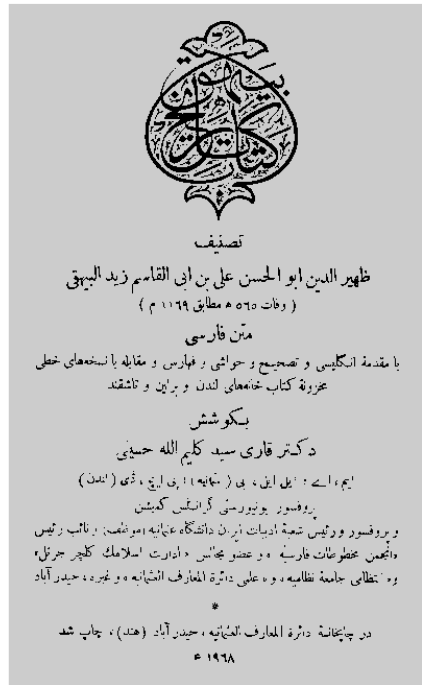 كتاب تاريخ بيهق
تصنيف
ظهير الدين ابو الحسن على بن ابى القاسم زيد البيهقى
( وفات ٥٦٥ ھ مطابق ١١٦٩ م )
متن فارسى
با مقدمۀ انگليسى و تصحيح و حواشى و فهارس و مقابله با نسخه‌هاى خطى
مخزونۀ كتاب خانه‌هاى لندن و برلين و تاشقند
بكوشش
دكتر قارى سيد كليم الله حسينى
ايم، اے؛ ايل ايل، بى (عثمانيه)؛ پى ايچ، ڈى (لندن)
پروفسور يونيورسٹى گرانٹس كميشن
و پروفسور و رئيس شعبۀ ادبيات ايران دانشگاه عثمانيه (موظف) و نائب رئيس
«انجمن مخطوطات فارسيه» و عضو مجالس «ادارت اسلامك كلچر جرنل»
و «انتظامى جامعۀ نظاميه» و «علمى دائرة المعارف العثمانيه» و غيره، حيدرآباد
*
در چاپخانۀ دائرة المعارف العثمانيه، حيدرآباد (هند)، چاپ شد
١٩٦٨ ء